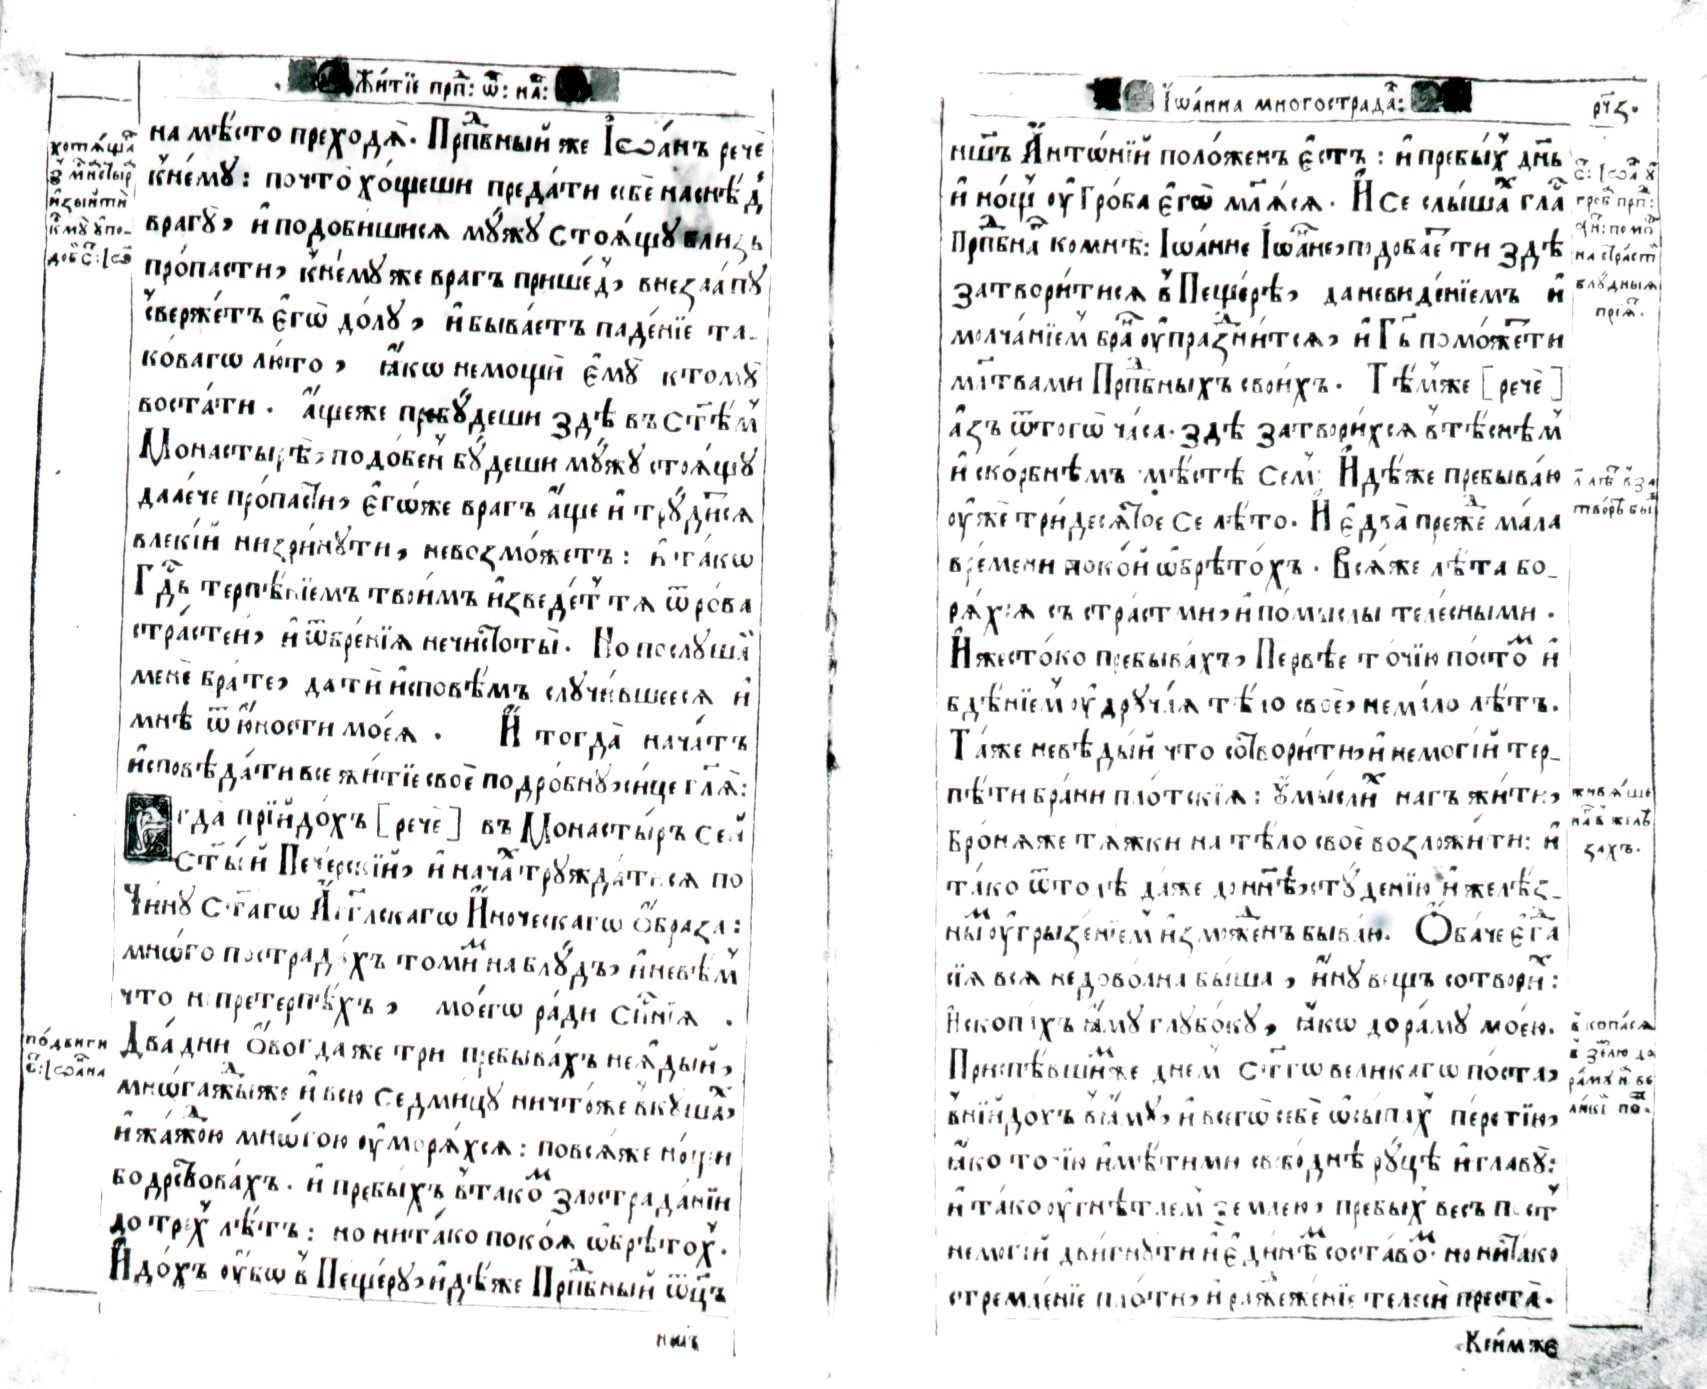 Жи́тїе прпⷣ: ѿ: на́ⷲ:
хотѧ́щаⷢ
и҆зыйтѝ
к̾мꙋ̀ ᲂупо-
доб̾ С҃: Іѡ
на мѣ́сто преходѧ̀. Прпⷣбный же Їѡа́нъ речѐ
к̾не́мꙋ: почто̀ хо́щеши преда́ти себѐ наснѣ́д̾
врагꙋ̀, и҆ подоби́шисѧ мꙋ́жꙋ стоѧ́щꙋ близь
про́пасти, к̾не́мꙋже врагъ прише́д̾, внеза́апꙋ
све́ржетъ є҆гѡ̀ до́лꙋ, и҆ быва́етъ паде́нїе та-
ко́вагѡ лю́то, ꙗ҆́кѡ немощѝ є҆мꙋ̀ ктомꙋ̀
воста́ти. А҆́щеже пребꙋ́деши здѣ̀ въ ст҃ѣ́м̾
Монастырѣ̀, подо́бен̾ бꙋ́деши мꙋ́жꙋ стоѧ́щꙋ
дале́че про́пасти, є҆гѡ́же врагъ а҆́ще и҆ трꙋди́тсѧ
влекі́й низри́нꙋти, невозмо́жетъ: и҆ та́кѡ
Гдⷭ҇ь терпѣ́нїемъ твои́мъ и҆зведе́т̾ тѧ ѿ ро́ва
стра́стей, и҆ ѿ бре́нїѧ нечистоты̀. Но послꙋ́шай
менѐ бра́те, да ти и҆сповѣ́мъ слꙋчи́вшеесѧ и҆
мнѣ̀ ѿ ю҆́ности моеѧ̀. И҆ тогда̀ нача́тъ
и҆сповѣ́дати все жи́тїе своѐ подро́бнꙋ, си́це глѧ̀:
Єгда̀ прїйдо́хъ [речѐ] въ Монасты́ръ сей
Ст҃ы́й Пече́рскїй, и҆ нача́хⷯ трꙋжда́тисѧ по
Чи́нꙋ ст҃а́гѡ А҆́гг҃лскагѡ И҆́ноческагѡ О҆́браза:
мно́го пострада́хъ томи́мⷨ на блꙋ́дъ, и҆ невѣ́м̾
что не претерпѣ́хъ, моегѡ̀ ра́ди спⷭ҇нїѧ.
Два́ дни О҆вогда́же три пребыва́хъ неꙗ́дый,
мно́гажⷣыже и҆ всю седми́цꙋ ничто́же вкꙋша́хⷯ,
и҆ жа́жⷣою мно́гою ᲂу҆морѧ́хсѧ: повсѧ́же но́щи
бодрствова́хъ. и҆ пребы́хъ в̾тако́мⷨ злострада́нїи
до тре́х̾ лѣ́тъ: но нита́ко поко́ѧ ѡ҆брѣто́х̾.
И҆до́хъ ᲂу҆́бѡ в̾ Пеще́рꙋ, и҆дѣ́же Прпⷣбный ѿц҃ъ
по́двиги
С҃: Іѡа́нна
нш҃ъ
Їѡа́нна многостра́даⷧ:
рч҃з.
нш҃ъ А҆нтѡ́нїй поло́женъ є҆́стъ: и҆ пребы́х̾ дн҃ь
и҆ но́щ̾ ᲂу Гро́ба є҆гѡ̀ мл҃ѧсѧ. И҆ се слы́шахⷯ гла́ⷭ
Прпⷣбнаⷢ ко мнѣ̀: Їѡа́нне Їѡа́нне, подоба́еⷮ ти здѣ̀
затвори́тисѧ в̾ Пеще́рѣ, да неви́денїемъ и҆
молча́нїем̾ бра́нⷩ ᲂу҆праздни́тсѧ, и҆ Гдⷭ҇ь помо́жеⷮти
мл҃твами Прпⷣбныхъ свои́хъ. Тѣ́мже [речѐ]
а҆́зъ ѿ тогѡ̀ ча́са. здѣ̀ затвори́хсѧ в̾тѣ́снѣм̾
и҆ ско́рбнѣмъ мѣ́стѣ се́м̾: И҆дѣ́же пребыва́ю
ᲂу҆жѐ три́десѧтое се лѣ́то. И҆ є҆два̀ пре́жⷣе ма́ла
вре́мени поко́й ѡ҆брѣто́хъ. Всѧ́же лѣ́та бо-
рѧ́хсѧ съ стра́стми, и҆ по́мыслы теле́сными.
И҆ жесто́ко пребыва́хъ, Пе́рвѣе то́чїю посто́мⷨ и҆
бдѣ́нїем̾ ᲂу҆дрꙋча́ѧ тѣ́ло своѐ, нема́ло лѣ́тъ.
Та́же невѣ́дый что сотвори́ти, и҆ немогі́й тер-
пѣ́ти бра́ни пло́тскїѧ: ᲂу҆мы́слихⷯ на́гъ жи́ти,
Бронѧ́же тѧ́жки на тѣ́ло своѐ возложи́ти: и҆
та́ко ѿто́лѣ да́же до нн҃ѣ, стꙋ́денїю и҆ желѣ́з-
ныⷨ ᲂу҆грызе́нїем̾ и҆змождⷣе́нъ быва́ю. О҆ба́че є҆гдⷣа̀
сїѧ̀ всѧ̀ недово́лна бы́ша, и҆́нꙋ ве́щъ сотвори́хⷯ:
И҆скопа́хъ ꙗ҆́мꙋ глꙋбо́кꙋ, ꙗ҆́кѡ до ра́мꙋ мое́ю.
Приспѣ́вшиⷨже дне́м̾ ст҃гѡ вели́кагѡ по́ста,
внїйдо́хъ в̾ꙗ́мꙋ, и҆ всегѡ̀ себѐ ѡ҆сы́пах̾ пе́рстїю,
ꙗ҆́ко то́чїю и҆мѣ́ти ми свобо́днѣ рꙋ́цѣ и҆ главꙋ̀:
и҆ та́ко ᲂу҆гнѣта́ем̾ земле́ю, пребы́х̾ весъ по́ст̾
немогі́й дви́гнꙋти ни є҆ди́нѣмⷨ соста́вомⷨ. но ни та́ко
стремле́нїе пло́ти, и҆ ражⷣеже́нїе телесѝ преста̀.
С҃: Іѡⷩ ᲂу҆
гроб̾ прпⷣ:
на стра́сти
блꙋ́дныѧ
прїѧⷮ.
л҃ лѣ́тⷮ в̾за
тво́рѣ бы̀
живѧ́ше
на́гⷢ в̾ желѣ́
захъ.
вкопа́сѧ
в̾ зе́млю до
ра́мꙋ и҆ ве
ли́кїй поⷭ.
К си́мже